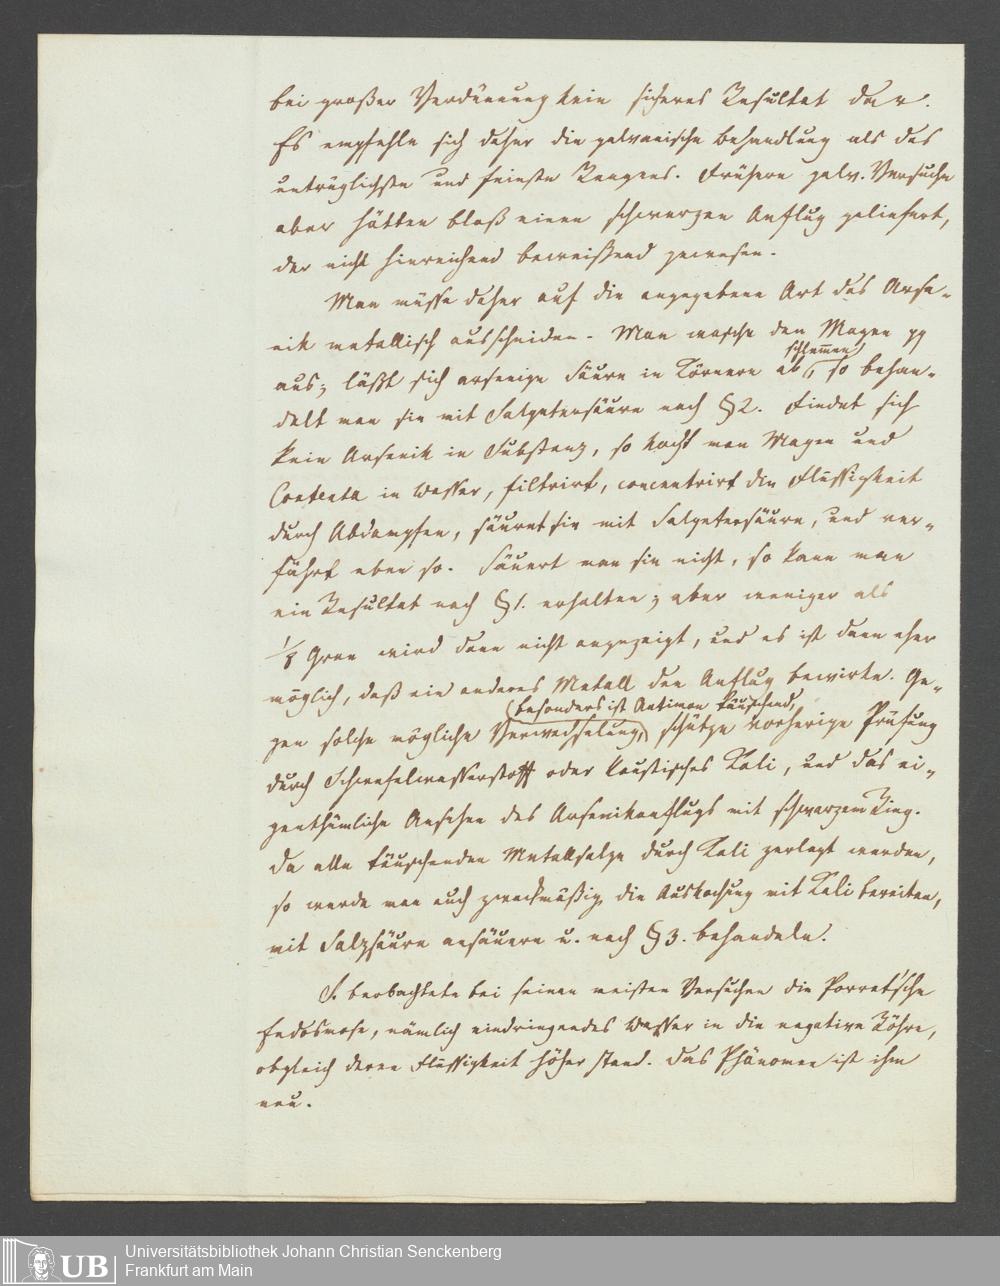 bei großer Verdünnung kein sicheres Resultat dar.
Es empfehle sich daher die galvanische Behandlung als das
untrüglichste und feinste Reagens. Frühere galv. Versuche
aber hätten bloß einen schwarzen Anflug geliefert,
der nicht hinreichend beweißend gewesen.
Man müsse daher auf die angegebene Art das Arse-
nik metallisch ausscheiden. Man wasche den Magen pp
schlemmen
aus; läßt sich arsenige Säure in Körnern ab, so behan-
delt man sie mit Salpetersäure nach § 2. Findet sich
kein Arsenik in Substanz, so kocht man Magen und
Contenta in Wasser, filtrirt, concentrirt die Flüssigkeit
durch Abdampfen, säuert sie mit Salpetersäure, und ver-
fährt eben so. Säuert man sie nicht, so kann man
ein Resultat nach § 1. erhalten; aber weniger als
1/8 Gran wird dann nicht angezeigt, und es ist dann eher
möglich, daß ein anderes Metall den Anflug bewirke. Ge-
(besonders ist Antimon täuschend,
gen solche mögliche Verwechselung,) schütze vorherige Prüfung
durch Schwefelwasserstoff oder kaustisches Kali, und das ei-
genthümliche Ansehen des Arsenikanflugs mit schwarzem Ring.
Da alle täuschenden Metallsalze durch Kali zerlegt werden,
so werde man auch zweckmäßig die Auskochung mit Kali bereiten,
mit Salzsäure ansäuern u. nach § 3. behandeln.
S. beobachtete bei seinen meisten Versuchen die Porret'sche
Endosmose, nämlich eindringendes Wasser in die negative Röhre,
obgleich deren Flüssigkeit höher stand. Das Phänomen ist ihm
neu.
UB
Universitätsbibliothek Johann Christian Senckenberg
Frankfurt am Main